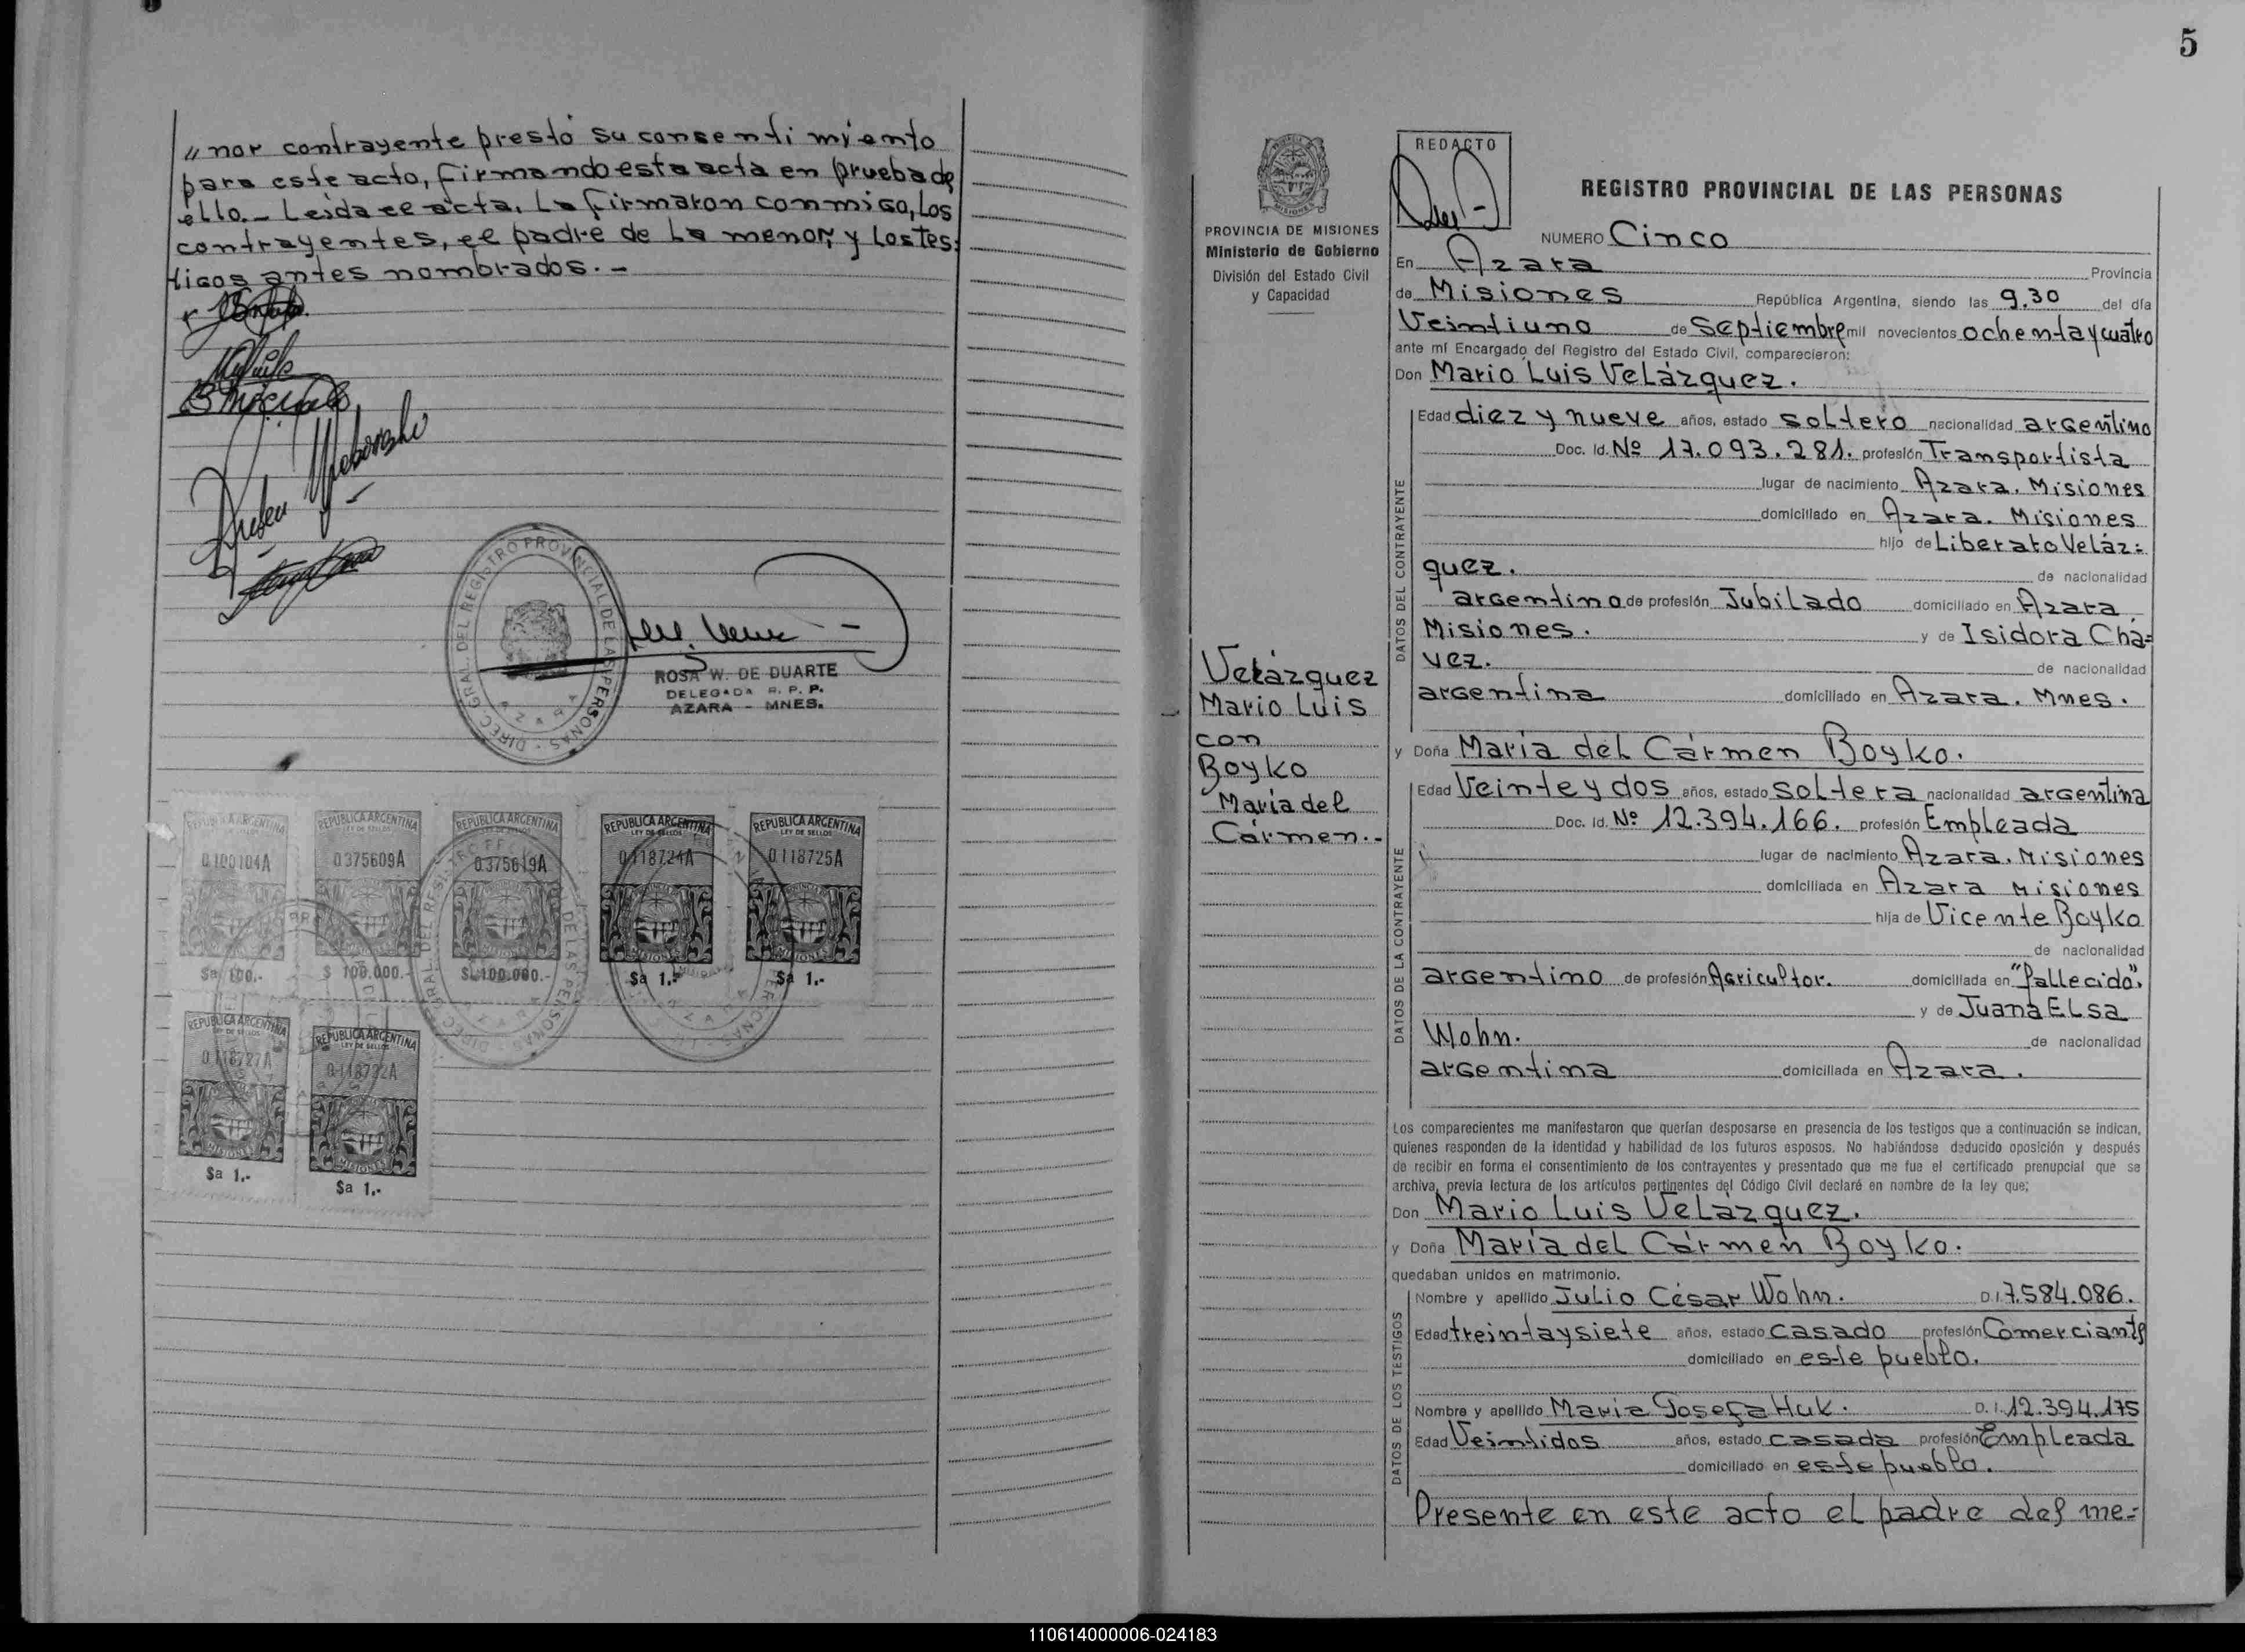 〃nor contrayente prestó su consentimiento
para este acto, firmando esta acta en prueba de
ello.- Leída el acta, La firmaron conmigo, Los
contrayentes, el padre de La menor, y Los tes:
tigos antes nombrados.-
DIREC. GRAL. DEL REGISTRO PROVINCIAL DE LAS PERSONAS -
AZARA
ROSA W. DE DUARTE
DELEGADA R. P. P.
AZARA - MNES.
REPUBLICA ARGENTINA
LEY DE SELLOS
0.100104A
MISIONES
$a 100.-
REPUBLICA ARGENTINA
LEY DE SELLOS
0.375609A
MISIONES
$ 100.000.-
REPUBLICA ARGENTINA
LEY DE SELLOS
0.375619A
MISIONES
$ 100.000.-
REPUBLICA ARGENTINA
LEY DE SELLOS
0.118724A
MISIONES
$a 1.-
REPUBLICA ARGENTINA
LEY DE SELLOS
0.118725A
MISIONES
$a 1.-
REPUBLICA ARGENTINA
LEY DE SELLOS
0.118727A
MISIONES
$a 1.-
REPUBLICA ARGENTINA
LEY DE SELLOS
0.118722A
MISIONES
$a 1.-
5
PROVINCIA DE MISIONES
Ministerio de Gobierno
División del Estado Civil
y Capacidad
Velázquez
Mario Luis
con
Boyko
María del
Cármen.-
REDACTO
REGISTRO PROVINCIAL DE LAS PERSONAS
NUMERO Cinco
En Azara Provincia
de Misiones República Argentina, siendo las 9,30 del día
Veintiuno de Septiembre mil novecientos ochenta y cuatro
ante mí Encargado del Registro del Estado Civil, comparecieron:
Don Mario Luis Velázquez.
DATOS DEL CONTRAYENTE
Edad diez y nueve años, estado soltero nacionalidad argentino
Doc. Id. Nº 17.093.281. profesión Transportista
lugar de nacimiento Azara. Misiones
domiciliado en Azara. Misiones
hijo de Liberato Veláz:
quez. de nacionalidad
argentino de profesión Jubilado domiciliado en Azara
Misiones. y de Isidora Chá=
vez. de nacionalidad
argentina domiciliado en Azara. Mnes.
y Doña María del Cármen Boyko.
DATOS DE LA CONTRAYENTE
Edad Veinte y dos años, estado soltera nacionalidad argentina
Doc. Id. Nº 12.394.166. profesión Empleada
lugar de nacimiento Azara. Misiones
domiciliada en Azara Misiones
hija de Vicente Boyko
de nacionalidad
argentino de profesión Agricultor. domiciliada en "fallecido".
y de Juana Elsa
Wohn. de nacionalidad
argentina domiciliada en Azara.
Los comparecientes me manifestaron que querían desposarse en presencia de los testigos que a continuación se indican,
quienes responden de la identidad y habilidad de los futuros esposos. No habiéndose deducido oposición y después
de recibir en forma el consentimiento de los contrayentes y presentado que me fue el certificado prenupcial que se
archiva, previa lectura de los artículos pertinentes del Código Civil declaré en nombre de la ley que;
Don Mario Luis Velázquez.
y Doña María del Cármen Boyko.
quedaban unidos en matrimonio.
DATOS DE LOS TESTIGOS
Nombre y apellido Julio César Wohn. D.I. 7.584.086.
Edad treinta y siete años, estado casado profesión Comerciante
domiciliado en este pueblo.
Nombre y apellido María Josefa Huk. D. I. 12.394.175
Edad Veintidos años, estado casada profesión Empleada
domiciliado en este pueblo.
Presente en este acto el padre del me=
110614000006-024183